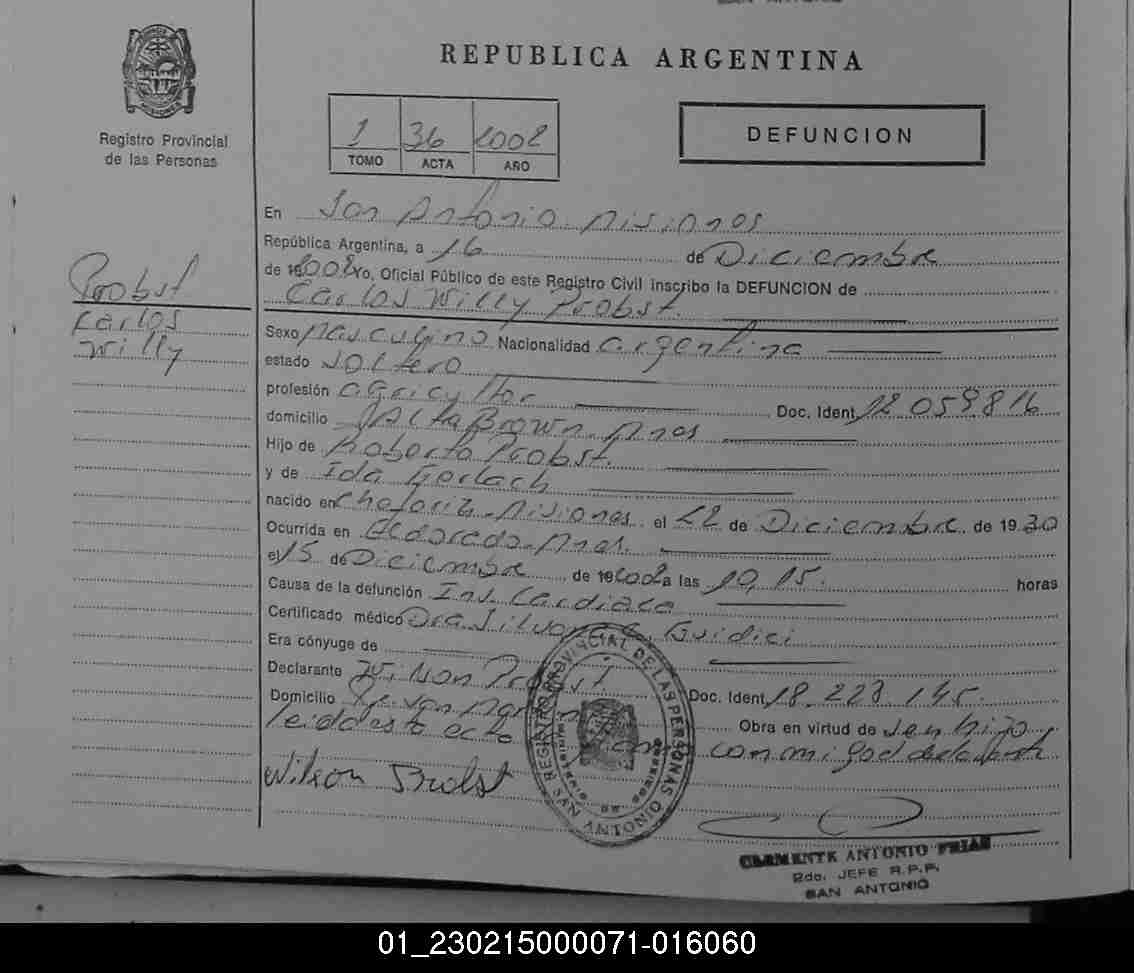 SAN ANTONIO
REPUBLICA ARGENTINA
PROVINCIA DE MISIONES
Registro Provincial
de las Personas
1 36 2002
TOMO ACTA AÑO
DEFUNCION
En San Antonio Misiones
República Argentina, a 16 de Diciembre
de 19 2002 Yo, Oficial Público de este Registro Civil inscribo la DEFUNCION de
Carlos Willy Probst.
Probst
Carlos
Willy
Sexo Masculino Nacionalidad argentina
estado Soltero
profesión agricultor Doc. Ident. 12.059.816
domicilio Alte Brown. Mnes
Hijo de Roberto Probst.
y de Ida Gerlach
nacido en Misiones, el 22 de Diciembre de 1930
Ocurrida en Eldorado. Mnes.
el 15 de Diciembre de 19 2002 a las 10,15. horas
Causa de la defunción Ins. Cardiaca
Certificado médico Dra. Silvana Guidici
Era cónyuge de
Declarante Wilson Probst. Doc. Ident. 18.223.145.
Domicilio Obra en virtud de ser hijo
leida esta acta conmigo el declarante
Wilson Probst
REGISTRO PROVINCIAL DE LAS PERSONAS
SAN ANTONIO
CLEMENTE ANTONIO FRIAS
2do. JEFE R.P.P.
SAN ANTONIO
01_230215000071-016060